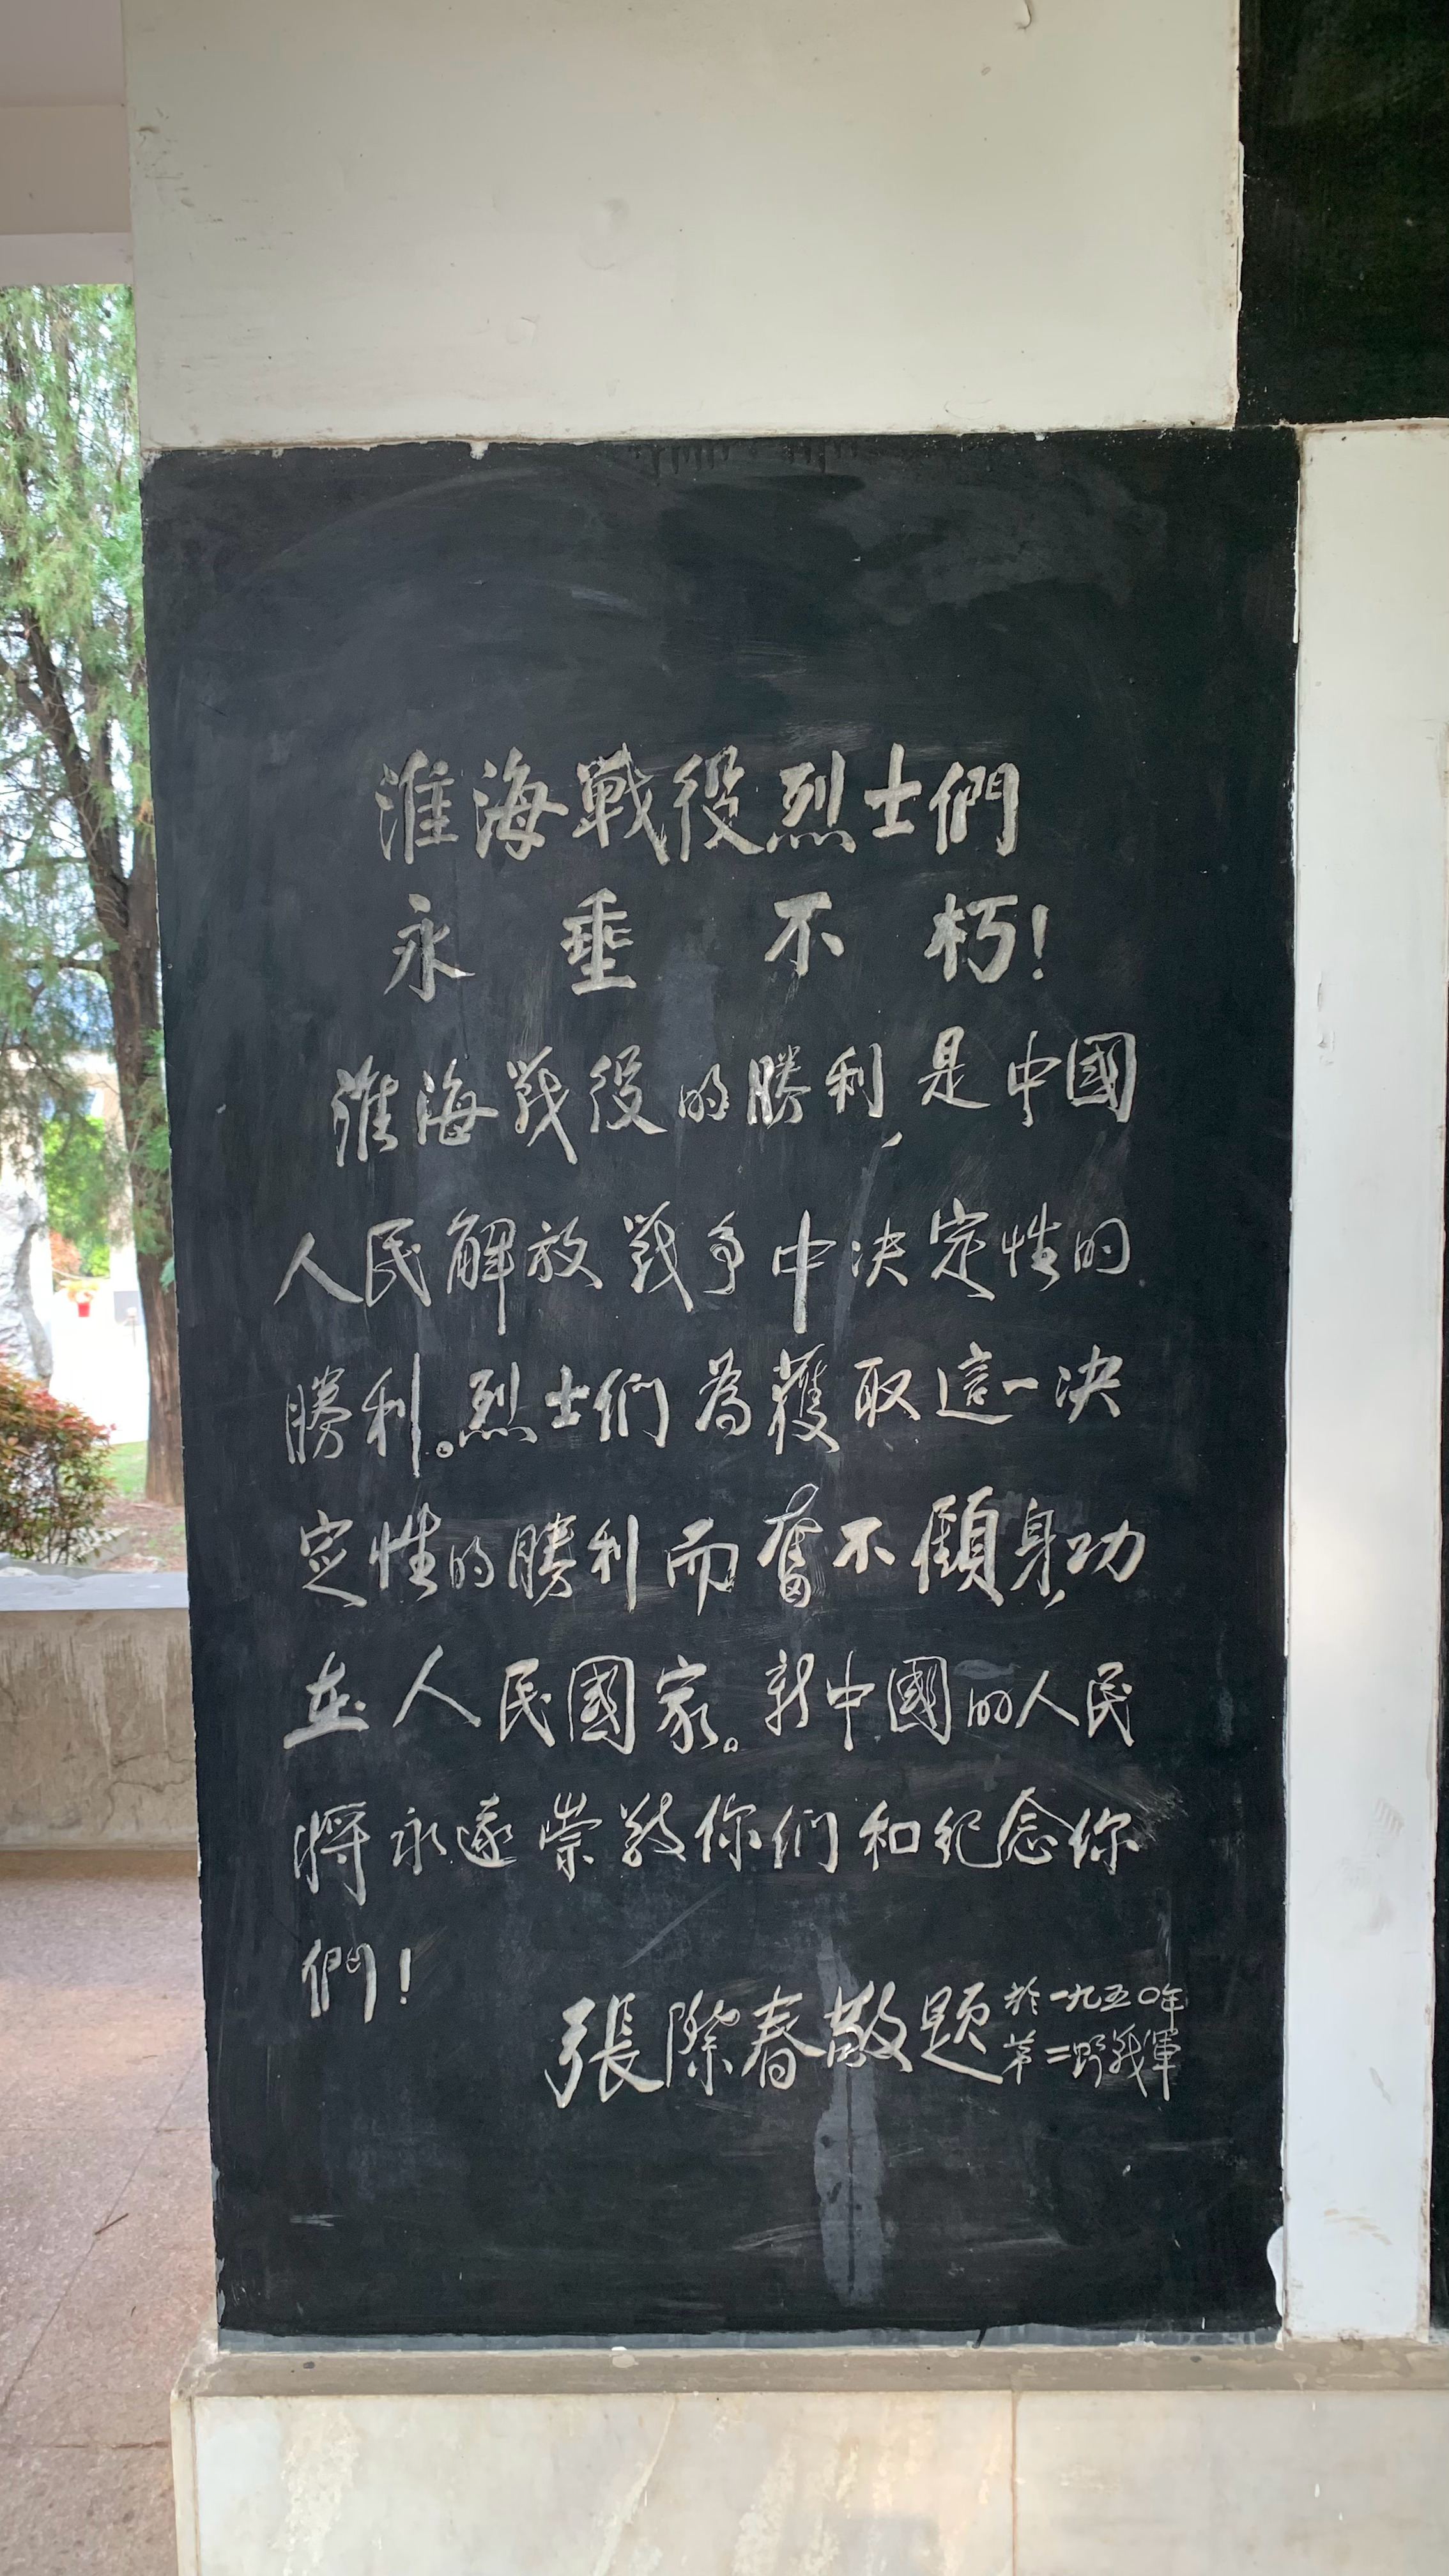 淮海戰役烈士們
永垂不朽!
淮海戰役的勝利,是中國
人民解放戰爭中决定性的
勝利。烈士們為獲取這一决
定性的勝利而奮不顧身,功
在人民國家。新中國的人民
將永遠崇敬你們和紀念你
們!
張際春敬題
於一九五〇年
第二野戰軍